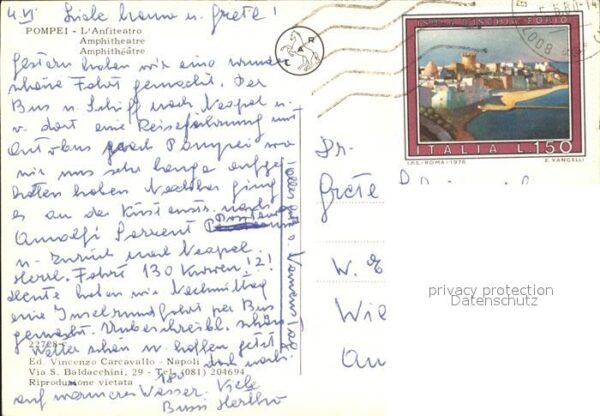 4.VI. Liebe Hanna u. Grete!
POMPEI - L'Anfiteatro
Amphitheatre
Amphithéâtre
Gestern haben wir eine wunder
schöne Fahrt gemacht. Per
Bus u. Schiff nach Neapel u.
v. dort eine Reiseführung mit
Autobus nach Pompei wo
wir uns sehr lange aufge
halten haben Nachher ging
es an der Küstenstr. nach
Amalfi Sorrent
u. zurück nach Neapel.
Herrl. Fahrt 130 Kurven!2!
Heute haben wir Nachmittag
eine Inselrundfahrt per Bus
gemacht. Unbeschreibl. schön
Wetter schön u. hoffen jetzt
22728-c
Ed. Vincenzo Carcavallo - Napoli
Via S. Baldacchini, 29 - Tel. (081) 204694
Riproduzione vietata
18°
auf wärmeres Wasser. Viele
Bussi Hertha
alles gute z. Namenstag
ISCHIA FORIO
ITALIA L.150
I.P.S.-ROMA-1976
E. VANGELLI
Fr.
Grete
W. E
Wie
Au
privacy protection
Datenschutz